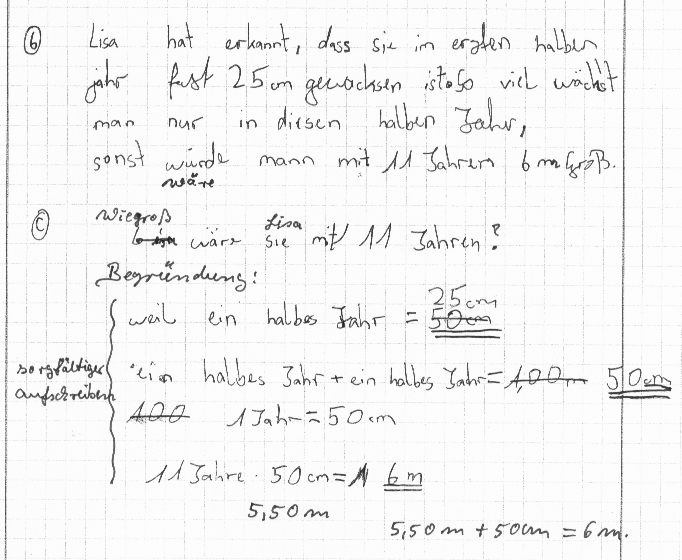 b Lisa hat erkannt, dass sie im ersten halben
jahr fast 25cm gewachsen ist. So viel wächst
man nur in diesen halben Jahr,
sonst würde mann mit 11 Jahren 6 m Groß.
wäre
c Wiegroß Lisa
wäre sie mit 11 Jahren?
Begründung:
25cm
weil ein halbes Jahr = 50cm
sorgfältiger aufschreiben
ein halbes Jahr + ein halbes Jahr = 100m 50cm
100 1 Jahr = 50 cm
11 Jahre · 50 cm = 6 m
5,50 m
5,50 m + 50cm = 6m.